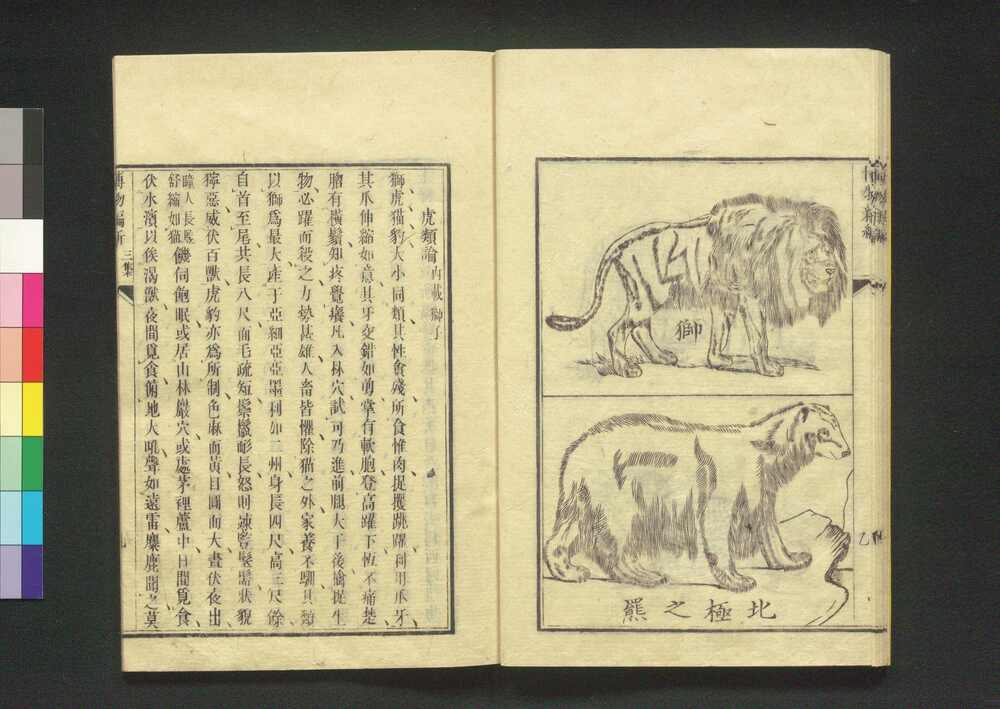 獅
北極之羆
虎類論内載獅子
獅虎猫豹大小同類其性貪殘所食惟肉捉攫跳躍利用爪牙
其爪伸縮如意其牙交錯如剪掌有軟胞登高躍下恆不痛楚
脗有橫鬚知疼覺癢凡入林穴試可乃進前腿大于後擒捉生
物必躍而殺之力勢甚雄人畜皆懼除猫之外家養不馴其類
以獅爲最大產于亞細亞亞墨利加二州身長四尺高三尺餘
自首至尾共長八尺面毛疏短鬃鬣彰長怒則竦豎髮髵狀貌
獰惡威伏百獸虎豹亦爲所制色麻而黃目圓而大晝伏夜出
瞳人長圓舒縮如猫饑伺飽眠或居山林巖穴或處茅裡蘆中日間覓食
伏水濱以俟渴獸夜間覓食俯地大吼聲如遠雷麋鹿聞之莫
博物新編 三集